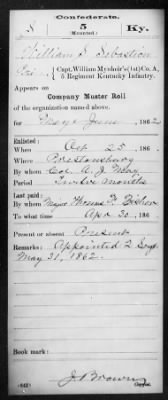 Confederate.
S 5 Ky.
(Mounted)
William S. Sebastian
Pvt, Capt. William Mynheir's (1st) Co. A,
5 Regiment Kentucky Infantry.
Appears on
Company Muster Roll
of the organization named above,
for May & June, 1862
Enlisted:
When Oct 25, 186
Where Prestonsburg
By whom Col. A. J. May
Period Twelve months
Last paid:
By whom Major Thomas
To what time Apr 30, 186
Present or absent Present
Remarks: Appointed 2 Sergt
May 31, 1862.
Book mark:
(642)